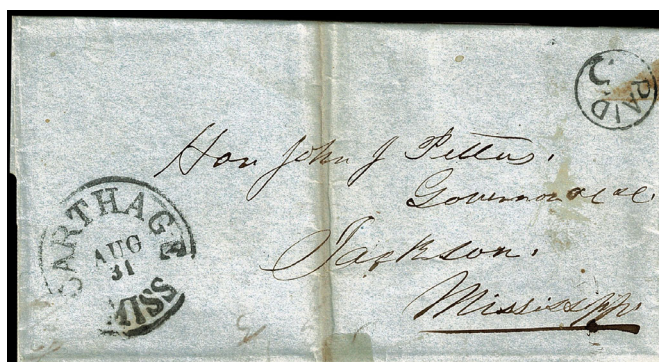 PAID
5
Hon John J Pettus.
Governor &c &c.
Jackson.
Mississippi
CARTHAGE
AUG
31
MISS